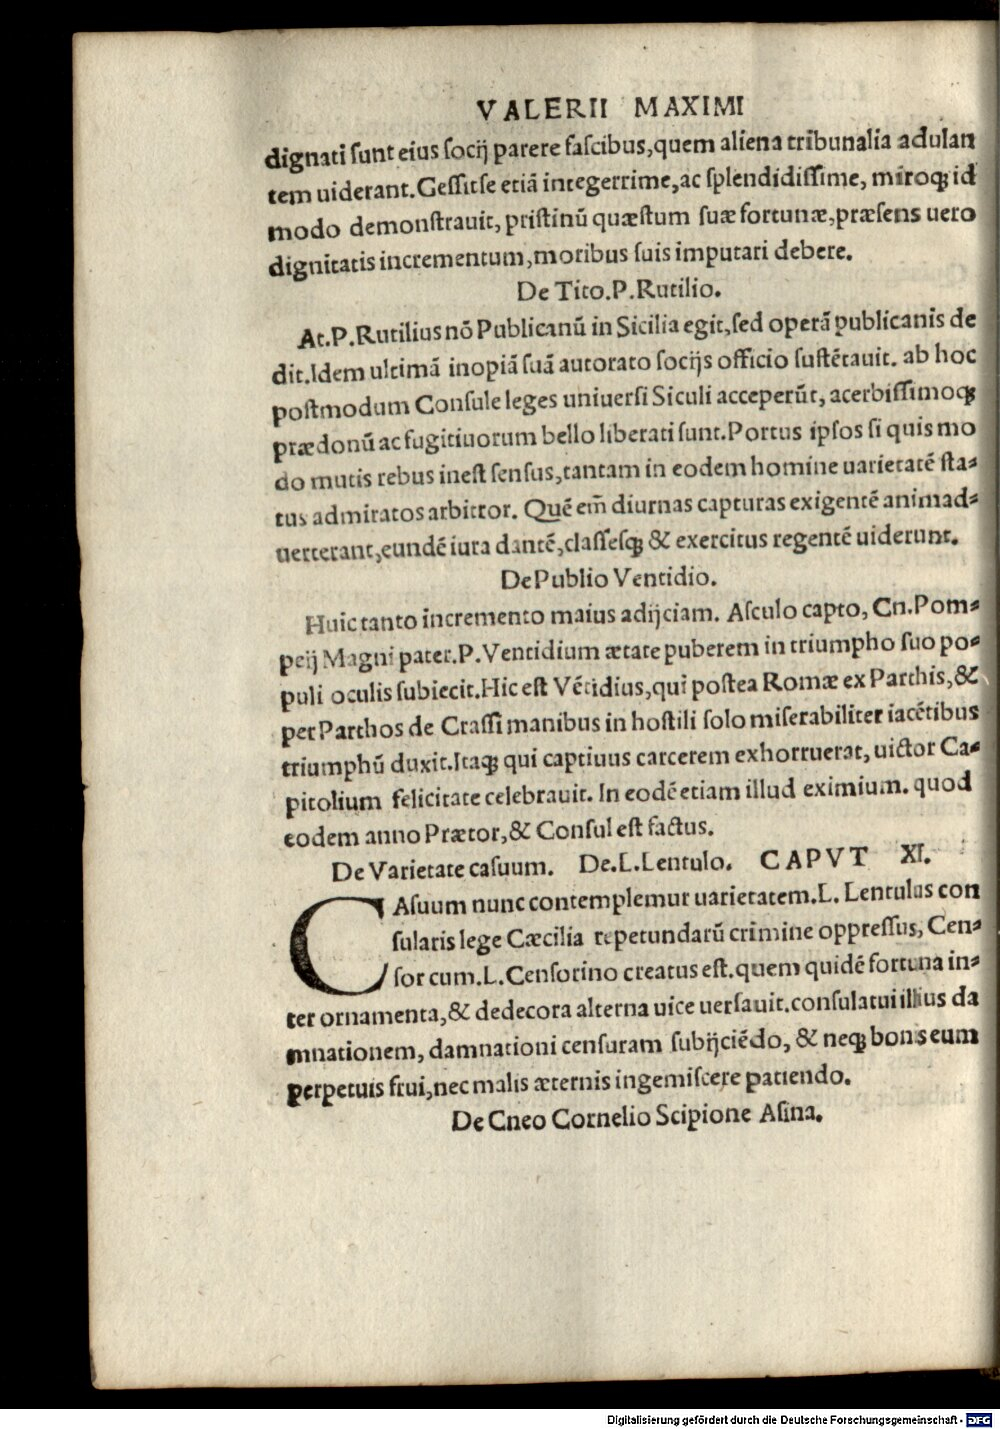 VALERII MAXIMI
dignati sunt eius socij parere fascibus,quem aliena tribunalia adulan
tem uiderant.Gessitse etiã integerrime,ac splendidissime, miroq; id
modo demonstrauit, pristinũ quæstum suæ fortunæ,præsens uero
dignitatis incrementum,moribus suis imputari debere.
De Tito.P.Rutilio.
At.P.Rutilius nõ Publicanũ in Sicilia egit,sed operã publicanis de
dit.Idem ultimã inopiã suã autorato socijs officio sustẽtauit. ab hoc
postmodum Consule leges uniuersi Siculi acceperũt, acerbissimoq;
prædonũ ac fugitiuorum bello liberati sunt.Portus ipsos si quis mo
do mutis rebus inest sensus,tantam in eodem homine uarietatẽ sta-
tus admiratos arbitror. Quẽ em̃ diurnas capturas exigentẽ animad-
uerterant,eundẽ iura dantẽ,classesq; & exercitus regentẽ uiderunt.
De Publio Ventidio.
Huic tanto incremento maius adijciam. Asculo capto, Cn.Pom-
peij Magni pater.P.Ventidium ætate puberem in triumpho suo po-
puli oculis subiecit.Hic est Vẽtidius,qui postea Romæ ex Parthis,&
per Parthos de Crassi manibus in hostili solo miserabiliter iacẽtibus
triumphũ duxit.Itaq; qui captiuus carcerem exhorruerat, uictor Ca-
pitolium felicitate celebrauit. In eodẽ etiam illud eximium. quod
eodem anno Prætor,& Consul est factus.
De Varietate casuum. De.L.Lentulo. CAPVT XI.
CAsuum nunc contemplemur uarietatem.L. Lentulus con
sularis lege Cæcilia repetundarũ crimine oppressus, Cen-
sor cum.L.Censorino creatus est.quem quidẽ fortuna in-
ter ornamenta,& dedecora alterna uice uersauit.consulatui illius da
mnationem, damnationi censuram subijciẽdo, & neq; bonis eum
perpetuis frui,nec malis æternis ingemiscere patiendo.
De Cneo Cornelio Scipione Asina.
Digitalisierung gefördert durch die Deutsche Forschungsgemeinschaft - DFG